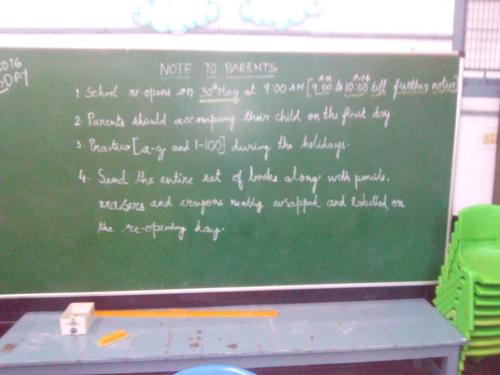 2016
NOTE TO PARENTS
1 School re-opens on 30th May at 9:00 AM [9:00 AM to 10:00 till further notice]
2 Parents should accompany their child on the first day
3. Practice [a-z and 1-100] during the holidays.
4. Send the entire set of books along with pencils,
erasers and crayons neatly wrapped and labelled on
the re-opening day.